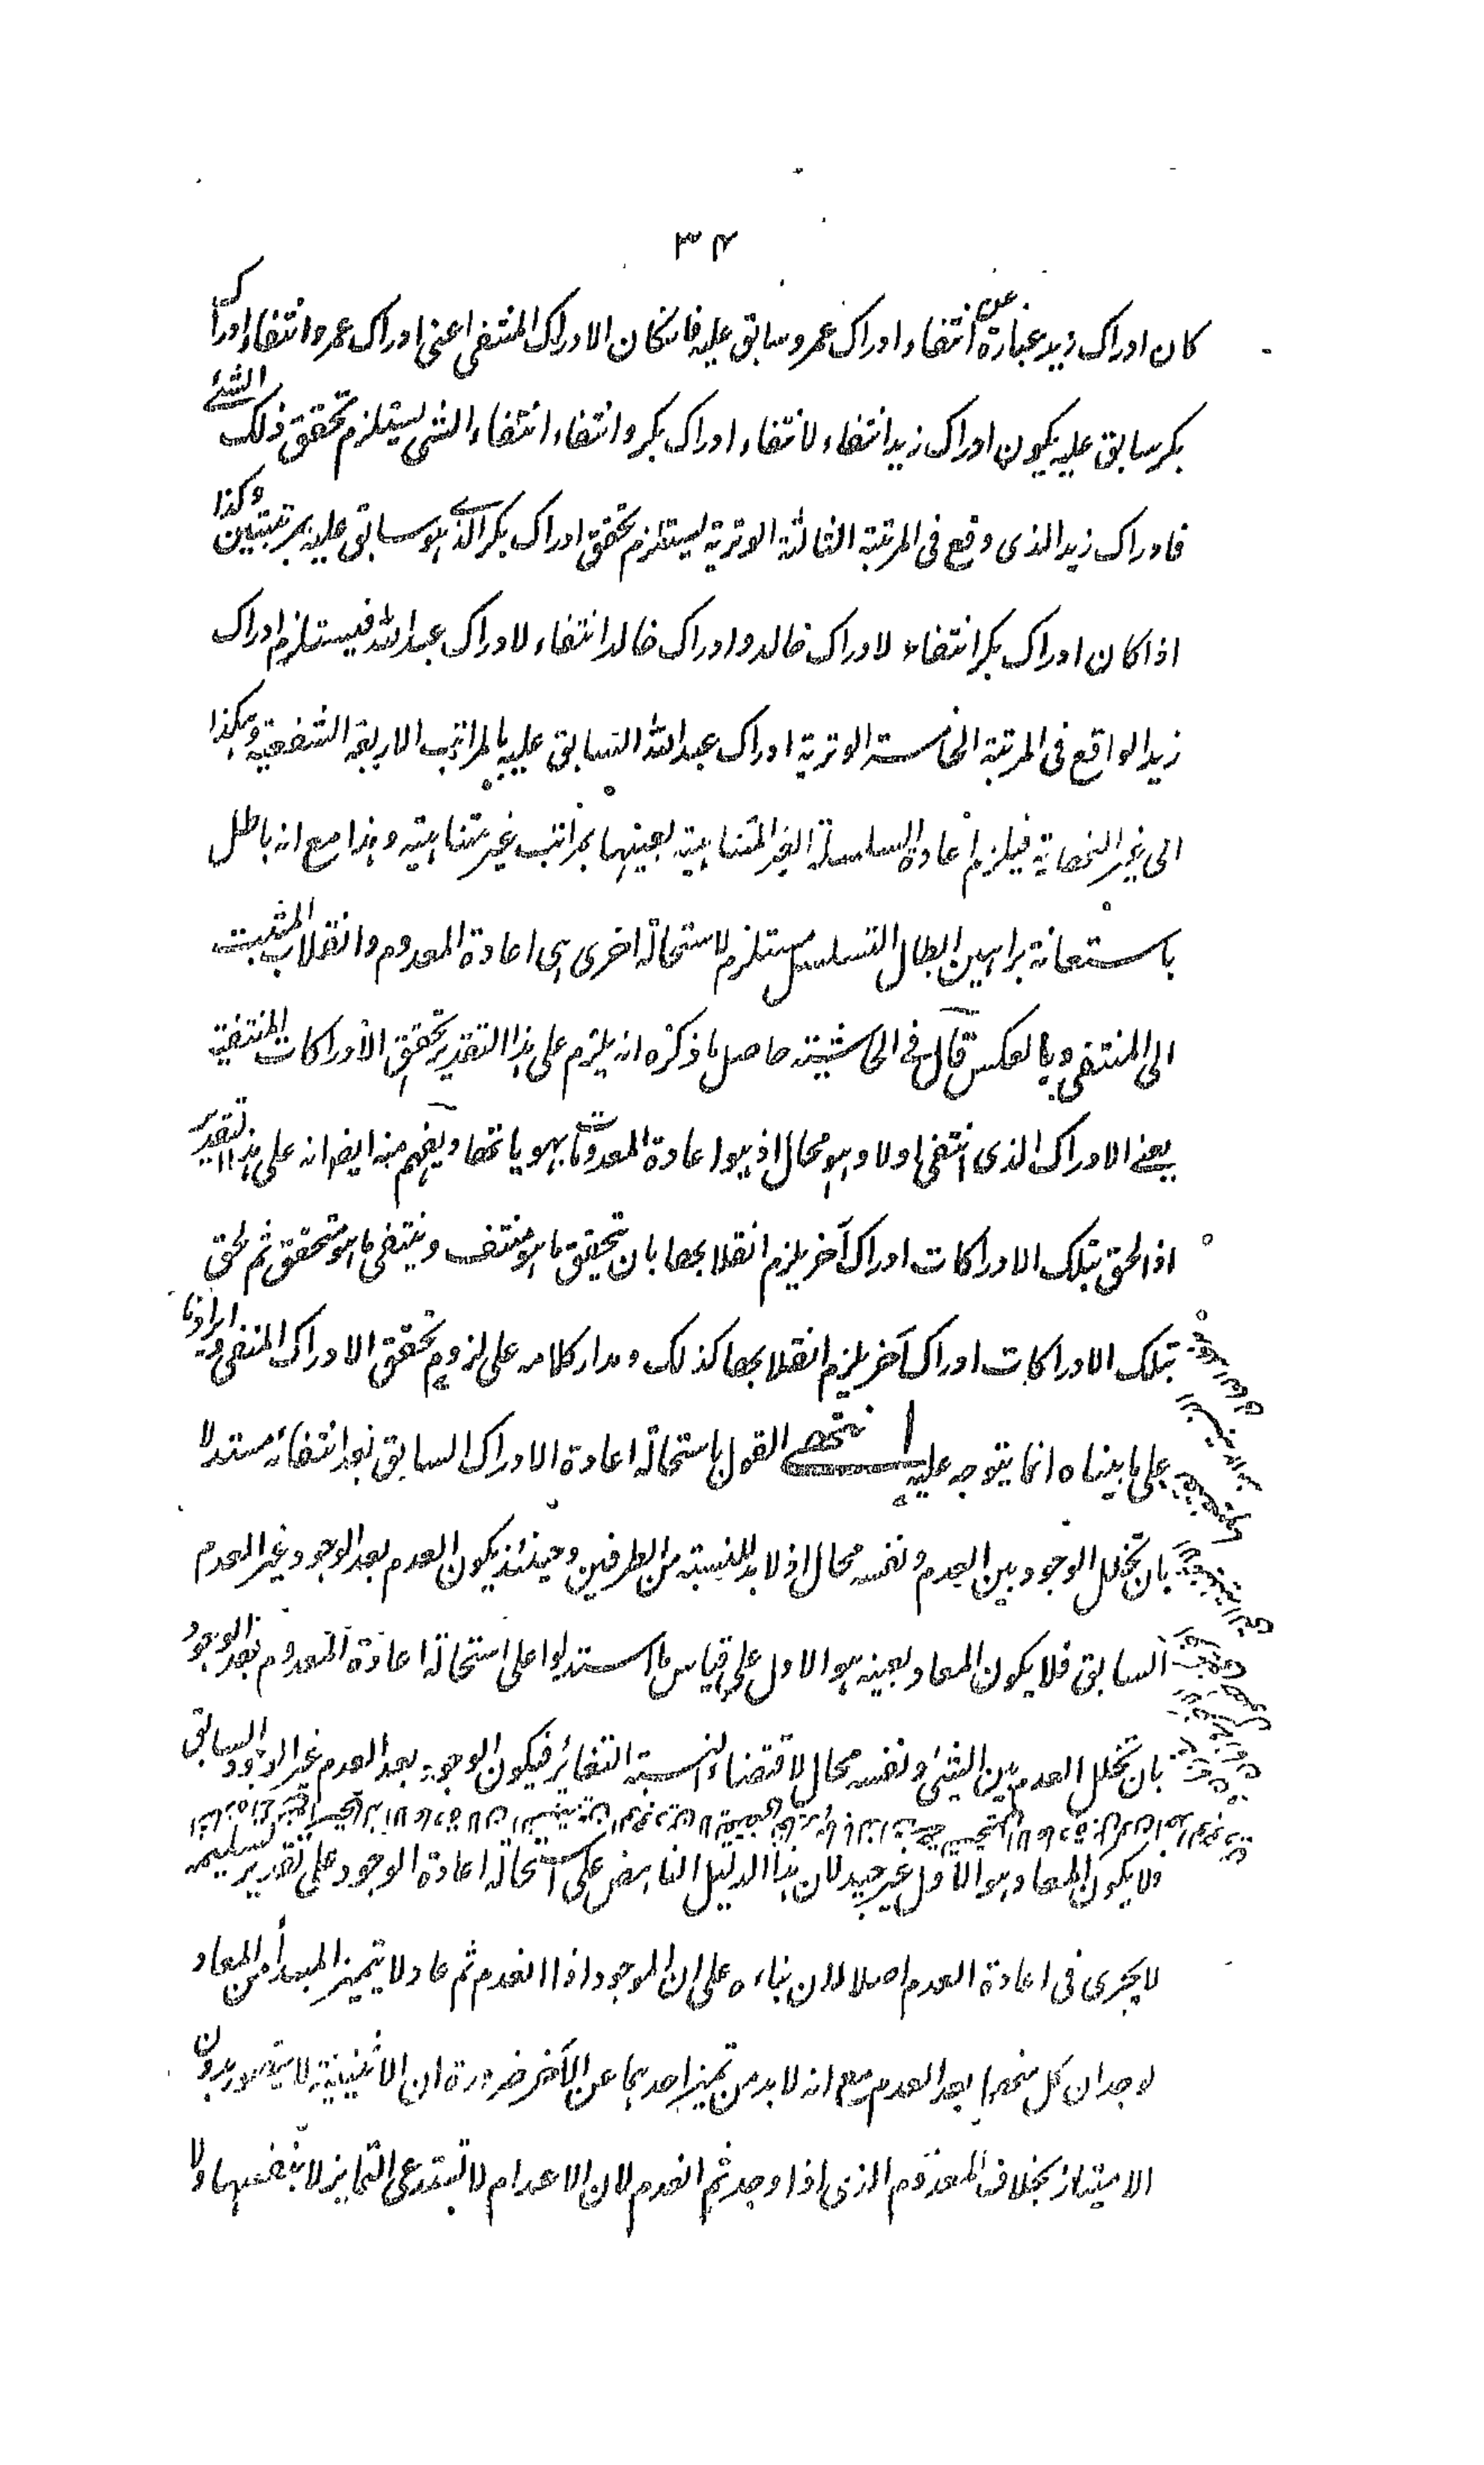 ۳۴
كان ادراك زيد عبارة عن انتفاء ادراك عمرو سابق عليه فانكان الادراك المنتفى اعنى ادراك عمرو انتفاء ادراك
بكر سابق عليه يكون ادراك زيد انتفاء لانتفاء ادراك بكر وانتفاء انتفاء الشى يستلزم تحقق ذلك الشئ
فادراك زيد الذى وقع فى المرتبة الثالثة الوترية يستلزم تحقق ادراك بكر الذى هو سابق عليه بمرتبتين وكذا
اذا كان ادراك بكر انتفاء لادراك خالد وادراك خالد انتفاء لادراك عبد الله فيستلزم ادراك
زيد الواقع فى المرتبة الخامسة الوترية ادراك عبد الله السابق عليه بالمراتب الاربعة الشفعية وهكذا
الى غير النهاية فيلزم اعادة السلسلة الغير المتناهية بعينها بمراتب غير متناهية وهذا مع انه باطل
باستعانة براهين ابطال التسلسل مستلزم لاستحالة اخرى هى اعادة المعدوم وانقلاب المثبت
الى المنتفى وبالعكس قال فى الحاشية حاصل ما ذكره انه يلزم على هذا التقدير تحقق الادراكات المنتفية
يعنى الادراك الذى انتفى اولا وهو محال اذ هو اعادة المعدومات بهوياتها ويفهم منه ايضا انه على هذا التقدير
اذا لحق بتلك الادراكات ادراك آخر يلزم انقلابها بان تحقق ما هو منتف وينتفى ما هو متحقق ثم لحق
بتلك الادراكات ادراك آخر يلزم انقلابها كذلك ومدار كلامه على لزوم تحقق الادراك المنتفى وايرادنا
على ما بيناه انما يتوجه عليه انتهى القول باستحالة اعادة الادراك السابق بعد انتفائه مستدلا
بان تخلل الوجود بين العدم ونفسه محال اذ لا بد للنسبة من الطرفين وحينئذ يكون العدم بعد الوجود غير العدم
السابق فلا يكون المعاد بعينه هو الاول على قياس ما استدلوا على استحالة اعادة المعدوم بعد الوجود
بان تخلل العدم بين الشئ ونفسه محال لاقتضاء النسبة التغائر فيكون الوجود بعد العدم غير الوجود السابق
فلا يكون المعاد هو الاول غير جيد لان هذا الدليل الناهض على استحالة اعادة الوجود على تقدير تسليمه
لا يجرى فى اعادة العدم اصلا لان بناءه على ان الموجود اذا انعدم ثم عاد لا يتميز المبدأ من المعاد
لوجدان كل منهما بعد العدم مع انه لا بد من تميز احدهما عن الآخر ضرورة ان الاثنينية لا يتصور بدون
الامتياز بخلاف المعدوم الذى اذا وجد ثم انعدم لان الاعدام لا تستدعى التمايز لا بنفسها ولا